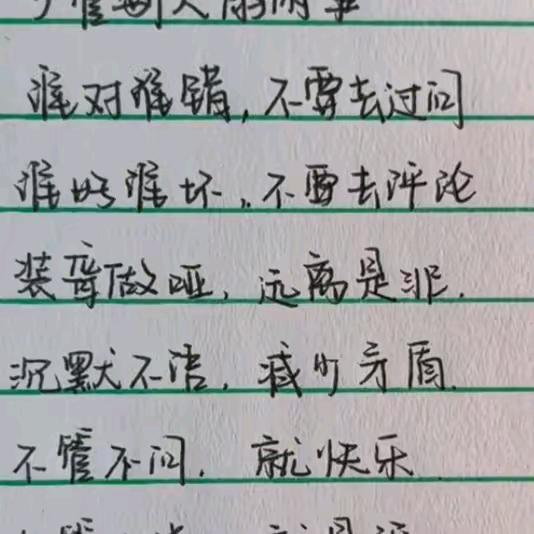 少管别人的闲事
谁对谁错,不要去过问
谁好谁坏,不要去评论
装聋做哑,远离是非.
沉默不语,减少矛盾.
不管不问.就快乐